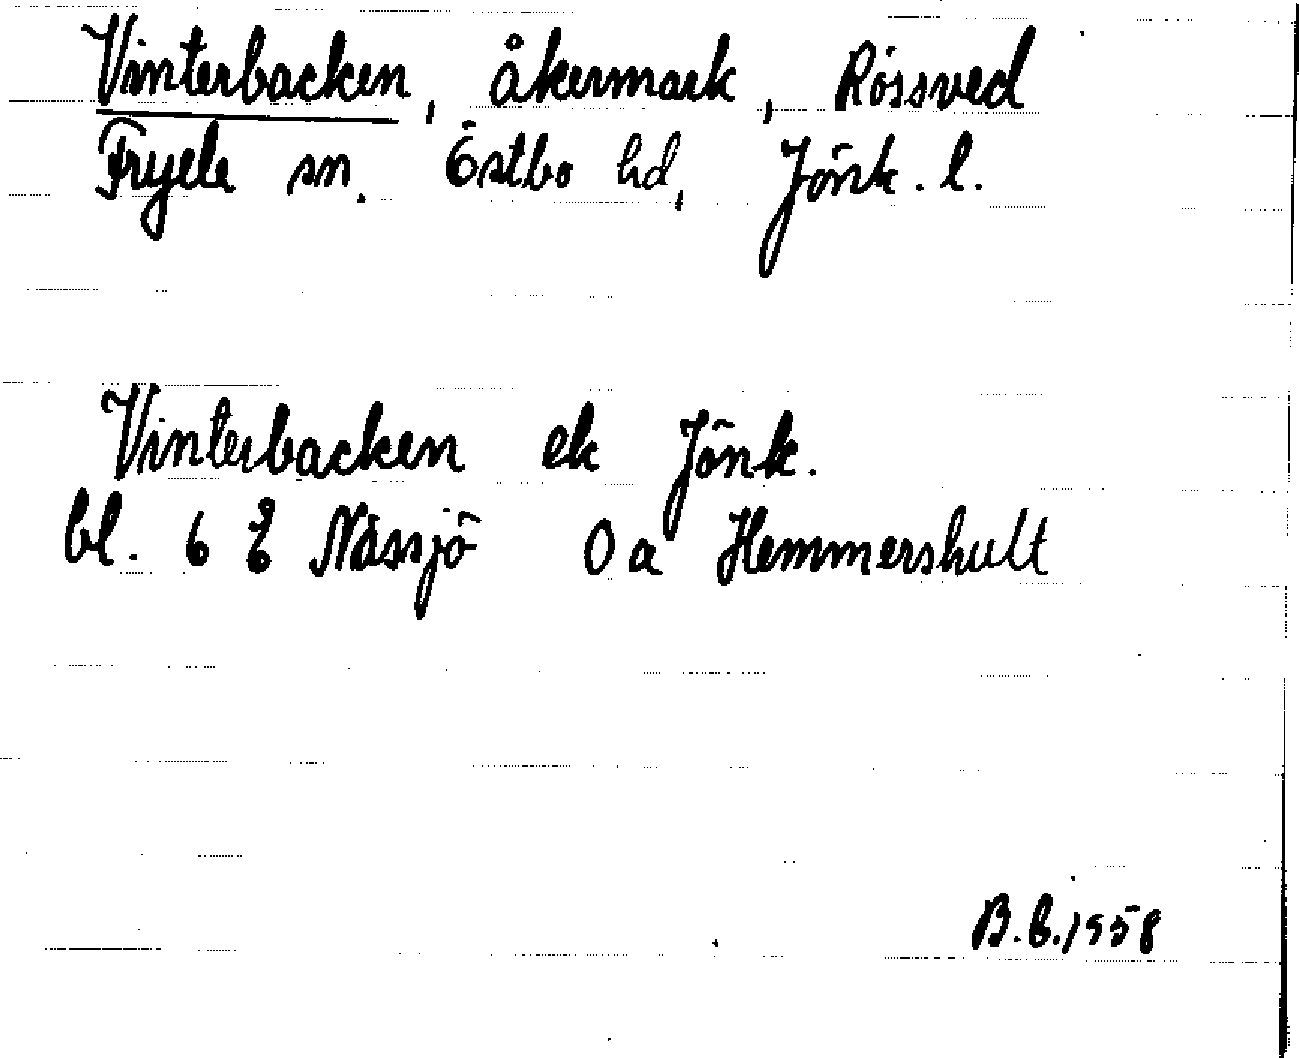 Vinterbacken, åkermark, Rössved
Fryele sn. Östbo hd, Jönk. l.
Vinterbacken ek Jönk.
bl. 6 E Nässjö 0 a Hemmershult
B.E. 1958